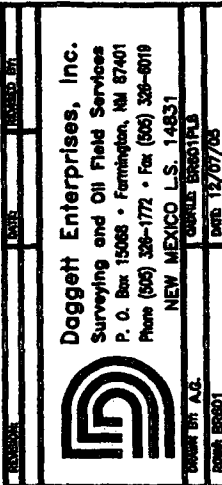 REVISION: DATE: REVISED BY:
Daggett Enterprises, Inc.
Surveying and Oil Field Services
P. O. Box 15068 • Farmington, NM 87401
Phone (505) 326-1772 • Fax (505) 326-6019
NEW MEXICO L.S. 14831
DRAWN BY: A.G. CADFILE:
DATE: 12/07/05